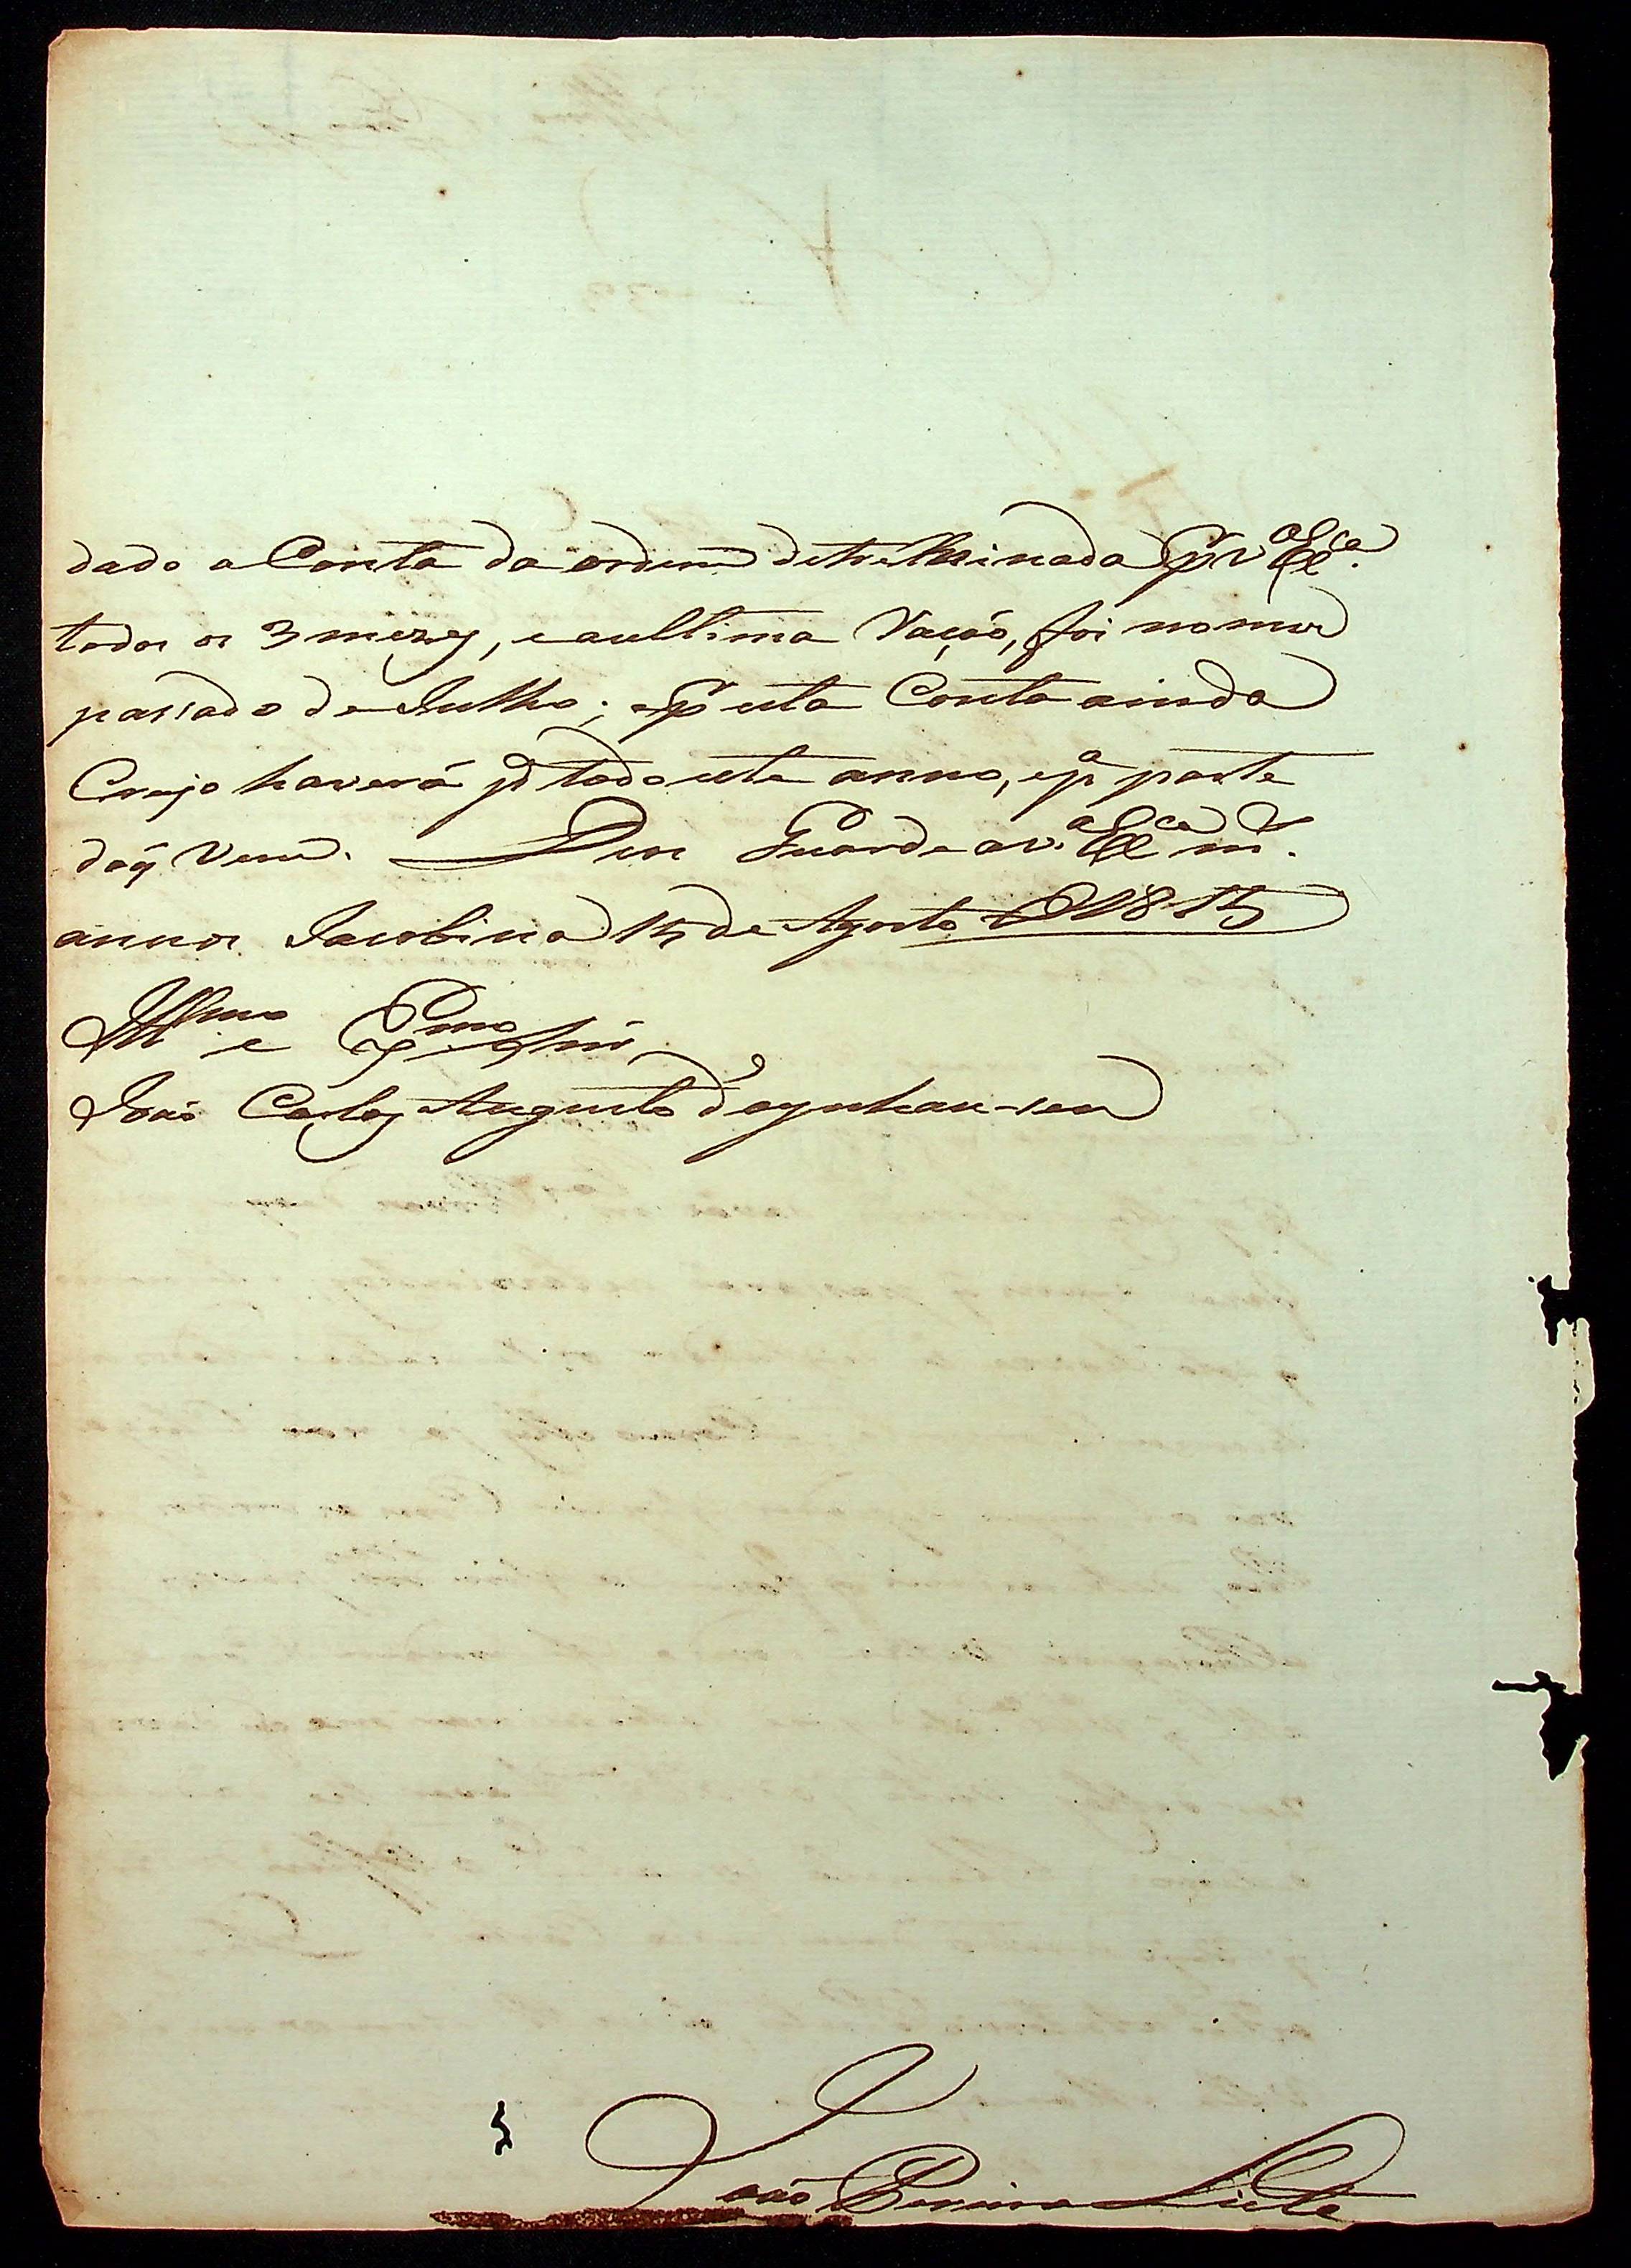 dado a Conta da ordem detreminada p̃ V.ª Ex.ᶜⁱᵃ
todos os 3 mezes, e a ultima Vação, foi no mes
passado de Julho; e p̃ esta Conta ainda
Creyo haverá p.ª todo este anno, e p.ª parte
do q̃ vem. Deos Guarde a V.ª Ex.ᶜⁱᵃ m.ˢ
annos. Jacobina 15 de Agosto de 1815
Ill.ᵐᵒ e Ex.ᵐᵒ Snr̃.
João Carlos Augusto d'oeynhau-sen
João Pereira Leite